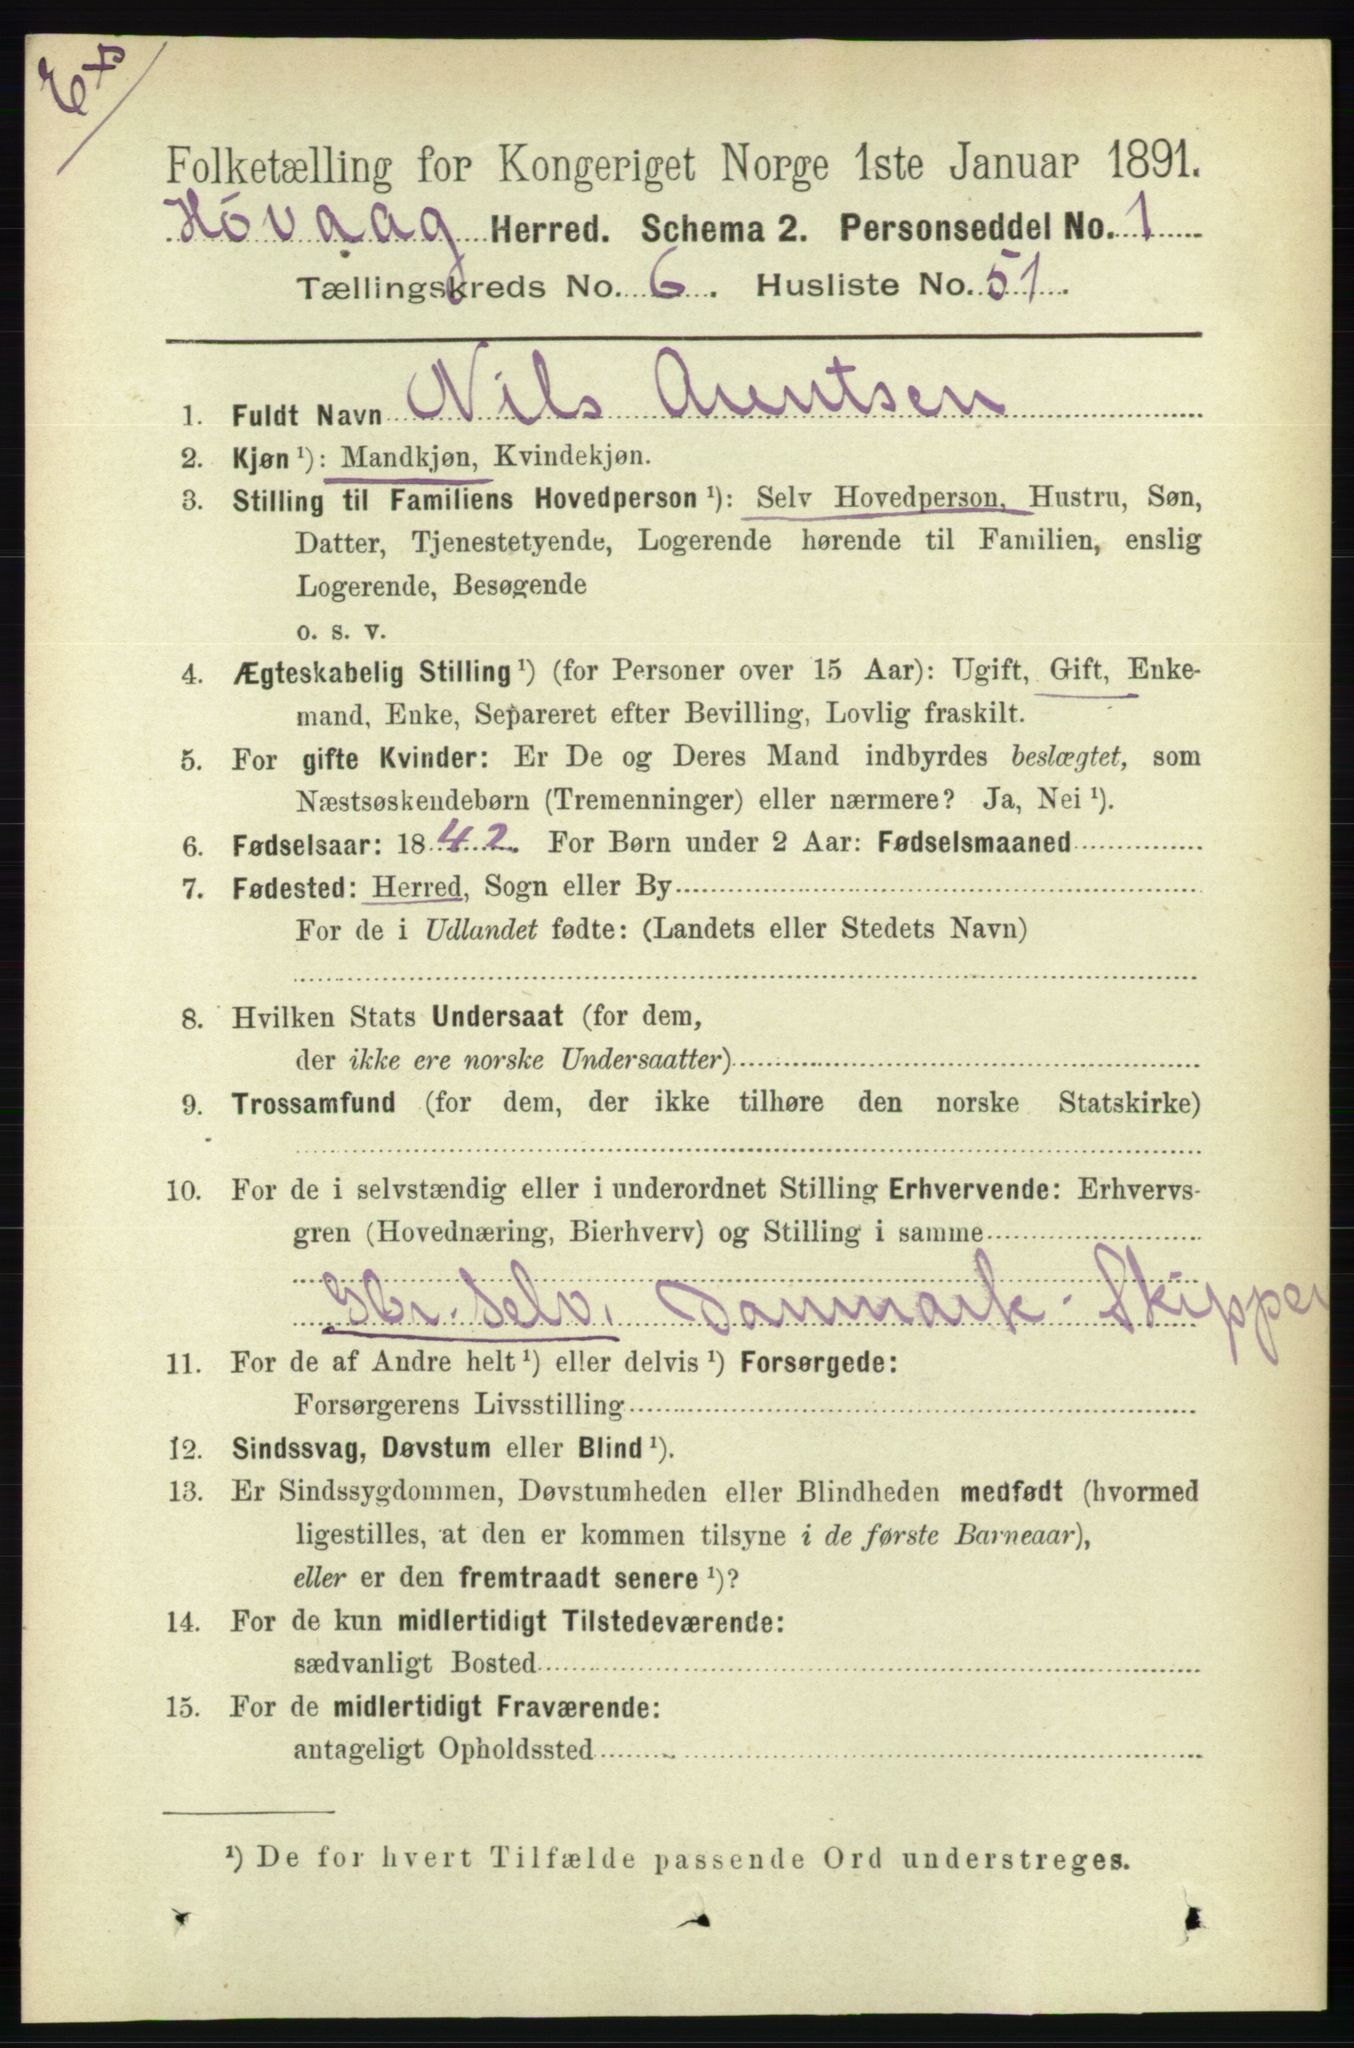 Folketælling for Kongeriget Norge 1ste Januar 1891.
Høvaag Herred. Schema 2. Personseddel No. 1
Tællingskreds No. 6. Husliste No. 51.
1. Fuldt Navn Nils Arentsen
2. Kjøn ¹): Mandkjøn, Kvindekjøn.
3. Stilling til Familiens Hovedperson ¹): Selv Hovedperson, Hustru, Søn,
Datter, Tjenestetyende, Logerende hørende til Familien, enslig
Logerende, Besøgende
o. s. v.
4. Ægteskabelig Stilling ¹) (for Personer over 15 Aar): Ugift, Gift, Enke-
mand, Enke, Separeret efter Bevilling, Lovlig fraskilt.
5. For gifte Kvinder: Er De og Deres Mand indbyrdes beslægtet, som
Næstsøskendebørn (Tremenninger) eller nærmere? Ja, Nei ¹).
6. Fødselsaar: 1842. For Børn under 2 Aar: Fødselsmaaned
7. Fødested: Herred, Sogn eller By
For de i Udlandet fødte: (Landets eller Stedets Navn)
8. Hvilken Stats Undersaat (for dem,
der ikke ere norske Undersaatter)
9. Trossamfund (for dem, der ikke tilhøre den norske Statskirke)
10. For de i selvstændig eller i underordnet Stilling Erhvervende: Erhvervs-
gren (Hovednæring, Bierhverv) og Stilling i samme
Gbr. Selv. Danmark-Skipper
11. For de af Andre helt ¹) eller delvis ¹) Forsørgede:
Forsørgerens Livsstilling
12. Sindssvag, Døvstum eller Blind ¹).
13. Er Sindssygdommen, Døvstumheden eller Blindheden medfødt (hvormed
ligestilles, at den er kommen tilsyne i de første Barneaar),
eller er den fremtraadt senere ¹)?
14. For de kun midlertidigt Tilstedeværende:
sædvanligt Bosted
15. For de midlertidigt Fraværende:
antageligt Opholdssted
¹) De for hvert Tilfælde passende Ord understreges.